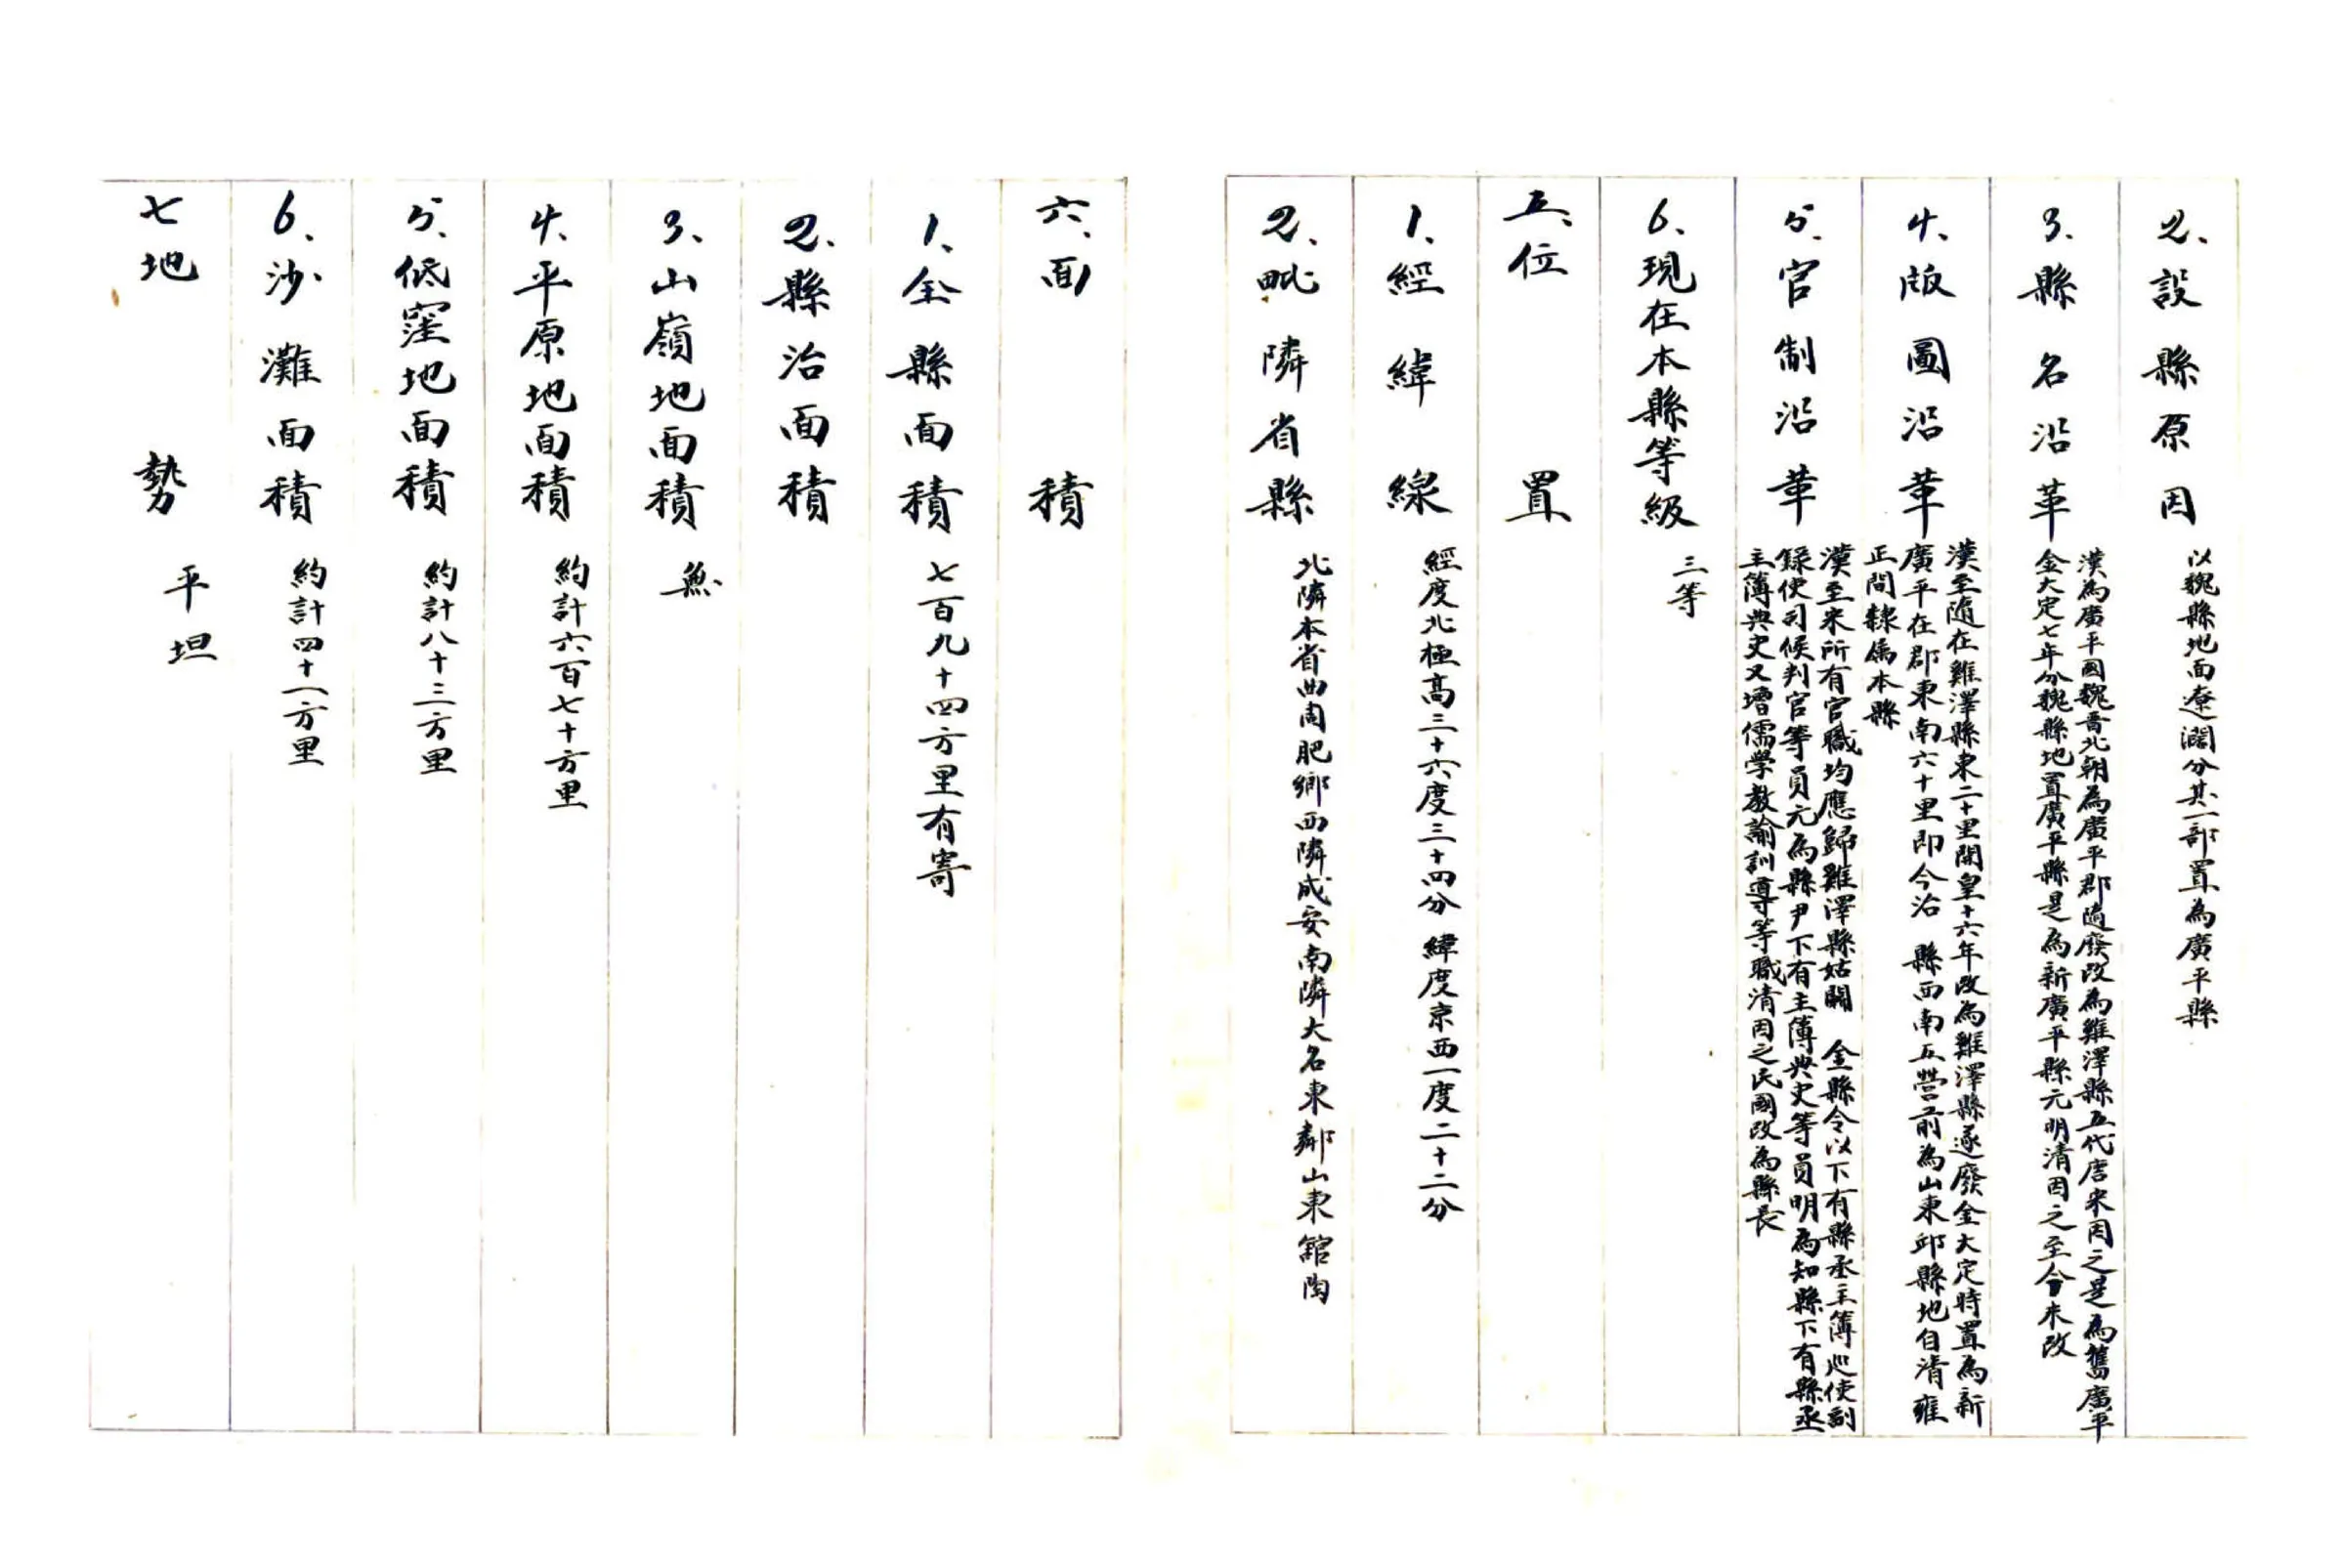 2、設縣原因
以魏縣地面遼濶分其一部置為廣平縣
3、縣名沿革
漢為廣平國魏晋北朝為廣平郡隨廢改為雞澤縣五代唐宋因之是為舊廣平
金大定七年分魏縣地置廣平縣是為新廣平縣元明清因之至今未改
4、版圖沿革
漢至隨在雞澤縣東二十里開皇十六年改為雞澤縣遂廢金大定時置為新
廣平在郡東南六十里即今治 縣西南五營前為山東邱縣地自清雍
正間隸屬本縣
5、官制沿革
漢至宋所有官職均應歸雞澤縣姑闕 金縣令以下有縣丞主簿巡使副
錄使司候判官等員元為縣尹下有主簿典史等員明為知縣下有縣丞
主簿典史又增儒學教諭訓導等職清因之民國改為縣長
6、現在本縣等級
三等
五、位置
1、經緯線
經度北極高三十六度三十四分 緯度京西一度二十二分
2、毗隣省縣
北隣本省曲周肥鄉西隣成安南隣大名東鄰山東舘陶
六、面積
1、全縣面積
七百九十四方里有寄
2、縣治面積
3、山嶺地面積
無
4、平原地面積
約計六百七十方里
5、低窪地面積
約計八十三方里
6、沙灘面積
約計四十一方里
七地勢
平坦